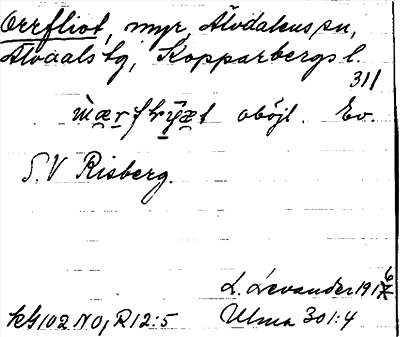 Orrfliot, myr, Älvdalens sn,
Älvdals tg, Kopparbergs l.
311
obōjl. Ev.
S.V Risberg.
L. Levander 1916
kg 102 NO, R12:5 Ulma 301:4